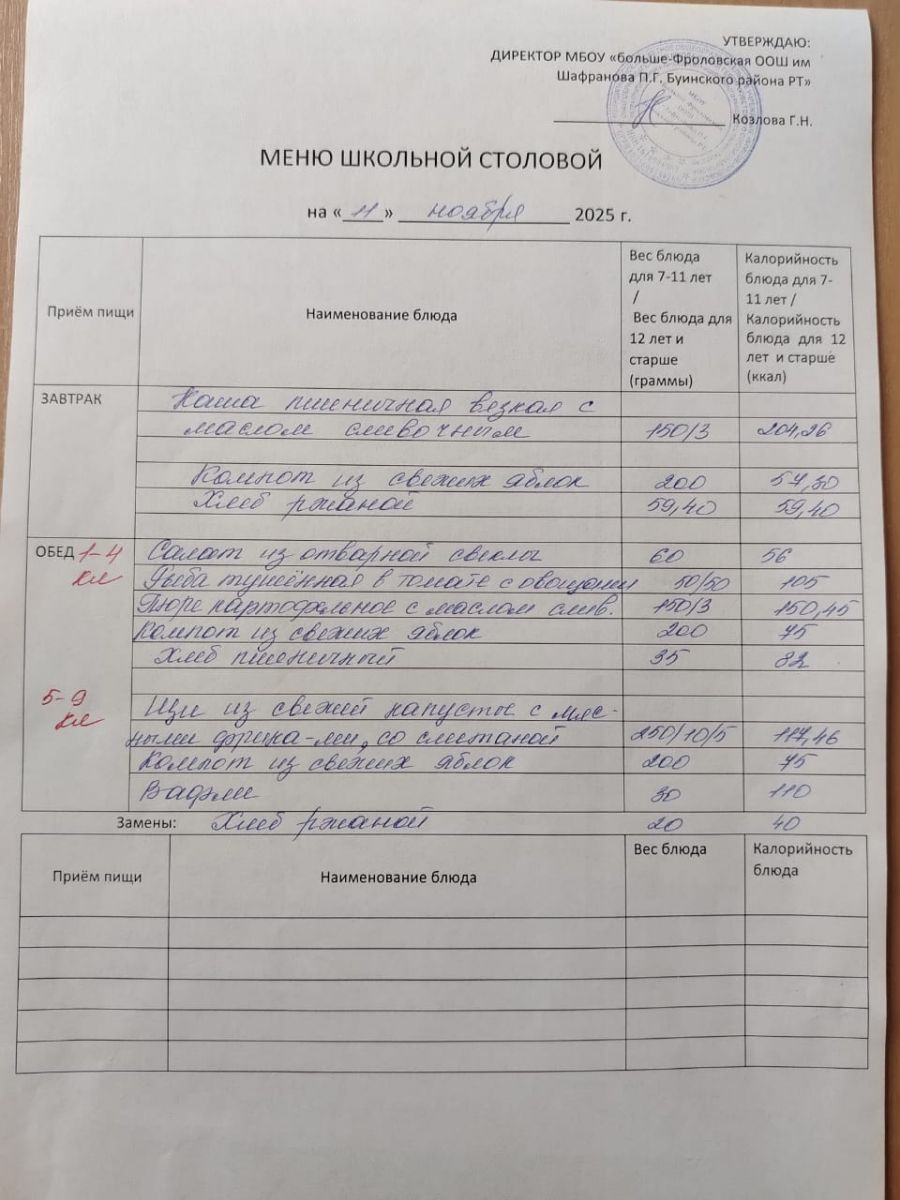 УТВЕРЖДАЮ:
ДИРЕКТОР МБОУ «больше-Фроловская ООШ им
Шафранова П.Г. Буинского района РТ»
Козлова Г.Н.
МЕНЮ ШКОЛЬНОЙ СТОЛОВОЙ
на «11» ноября 2025 г.
Приём пищи
Наименование блюда
Вес блюда
для 7-11 лет
/
Вес блюда для
12 лет и
старше
(граммы)
Калорийность
блюда для 7-
11 лет /
Калорийность
блюда для 12
лет и старше
(ккал)
ЗАВТРАК
Каша пшеничная вязкая с
маслом сливочным 150/3 204,26
Компот из свежих яблок 200 57,30
Хлеб ржаной 59,40 59,40
ОБЕД 1-4 Салат из отварной свеклы 60 56
кл Рыба тушённая в томате с овощами 50/50 105
Пюре картофельное с маслом слив. 150/3 150,45
Компот из свежих яблок 200 75
Хлеб пшеничный 35 82
5-9
кл Щи из свежий капусты с мяс-
ными фрика-ми, со сметаной 250/10/5 117,46
Компот из свежих яблок 200 75
Вафли 30 110
Замены: Хлеб ржаной 20 40
Приём пищи
Наименование блюда
Вес блюда
Калорийность
блюда